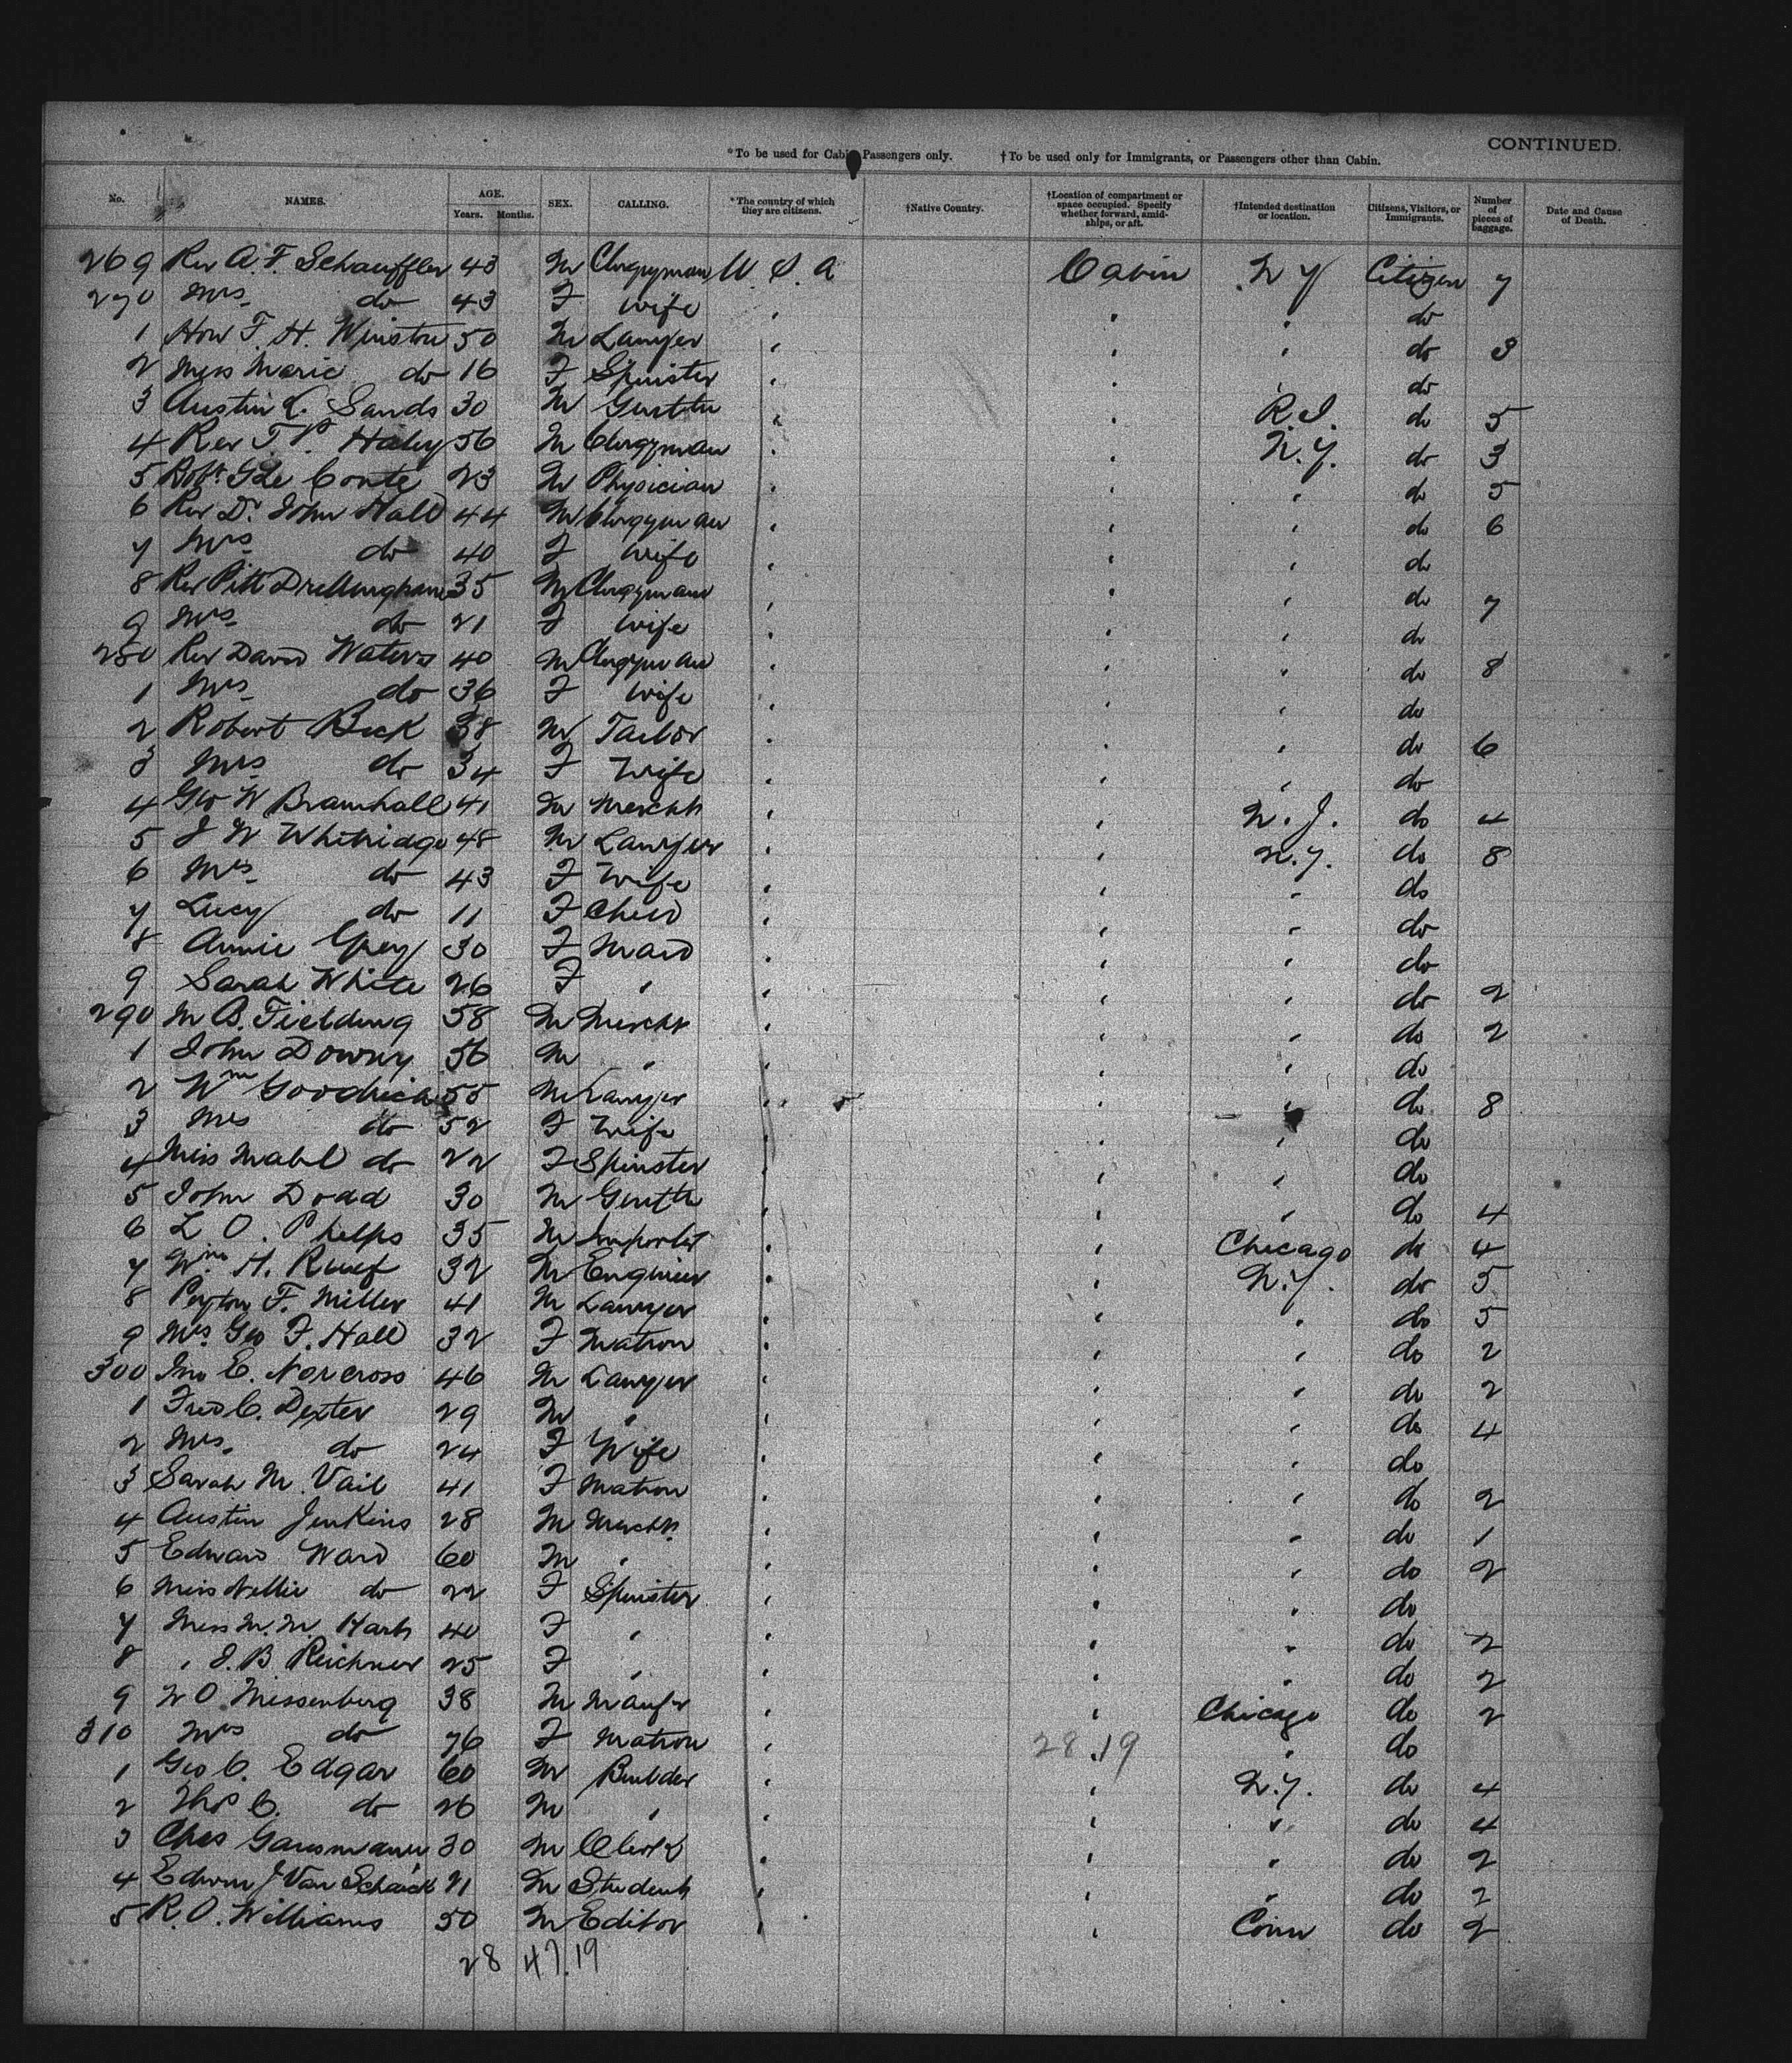 CONTINUED.
*To be used for Cabin Passengers only. †To be used only for Immigrants, or Passengers other than Cabin.
No. NAMES. AGE. Years. Months. SEX. CALLING. *The country of which they are citizens. †Native Country. †Location of compartment or space occupied. Specify whether forward, amidships, or aft. †Intended destination or location. Citizens, Visitors, or Immigrants. Number of pieces of baggage. Date and Cause of Death.
269 Rev A. F. Schauffler 43 M Clergyman U. S. A Cabin N Y Citizen 7
270 Mrs do 43 F Wife " " " do
1 Hon F. H. Winston 50 M Lawyer " " " do 3
2 Miss Marie do 16 F Spinster " " " do
3 Austin L. Sands 30 M " " R.I. do 5
4 Rev T. P. Haley 56 M Clergyman " " N.Y. do 3
5 Robt G Le Conte 23 M Physician " " " do 5
6 Rev Dr John Hall 44 M Clergyman " " " do 6
7 Mrs do 40 F Wife " " " do
8 Rev Pitt 35 M Clergyman " " " do 7
9 Mrs do 21 F Wife " " " do
280 Rev David Waters 40 M Clergyman " " " do 8
1 Mrs do 36 F Wife " " " do
2 Robert Beck 38 M Tailor " " " do 6
3 Mrs do 34 F Wife " " " do
4 Geo W Bramhall 41 M Mercht " " N.J. do 4
5 J W Whitridge 48 M Lawyer " " N.Y. do 8
6 Mrs do 43 F Wife " " " do
7 Lucy do 11 F Child " " " do
8 Annie Grey 30 F Maid " " " do
9 Sarah White 26 F " " " " do 2
290 M B. Fielding 58 M Mercht " " " do 2
1 John Downy 56 M " " " " do
2 Wm Goodrich 55 M Lawyer " " " do 8
3 Mrs do 52 F Wife " " " do
4 Miss Mabel do 22 F Spinster " " " do
5 John Dodd 30 M " " " do 4
6 L O. Phelps 35 M Importer " " Chicago do 4
7 Wm H. Ruef 32 M Engineer " " N.Y. do 5
8 Peyton F. Miller 41 M Lawyer " " " do 5
9 Mrs Geo F. Hall 32 F Matron " " " do 2
300 Jno E. Norcross 46 M Lawyer " " " do 2
1 Fred C. Dexter 29 M " " " " do 4
2 Mrs. do 24 F Wife " " " do
3 Sarah M. Vail 41 F Matron " " " do 2
4 Austin Jenkins 28 M Mercht. " " " do 1
5 Edward Ward 60 M " " " " do 2
6 Miss Nellie do 22 F Spinster " " " do
7 Miss M. M. Hart 40 F " " " " do 2
8 " J. B. Reichner 25 F " " " " do 2
9 W O. Missenberg 38 M Manfr " " Chicago do 2
310 Mrs do 76 F Matron " 28.19 " do
1 Geo C. Edgar 60 M Builder " " N.Y. do 4
2 Thos C. do 26 M " " " " do 4
3 Chas 30 M Clerk " " " do 2
4 Edwin J Van Schaick 21 M Student " " " do 2
5 R. O. Williams 50 M Editor " " Conn do 2
28 47.19